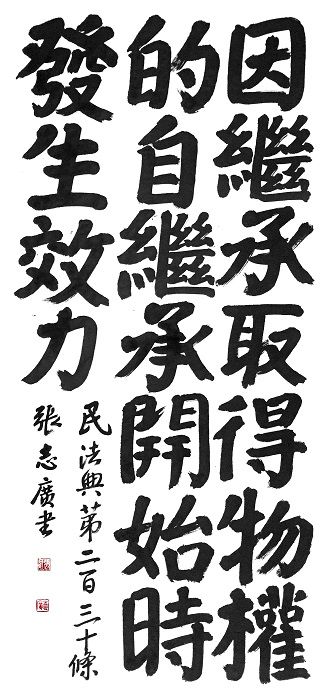 因繼承取得物權
的自繼承開始時
發生效力
民法典第二百三十條
張志廣書